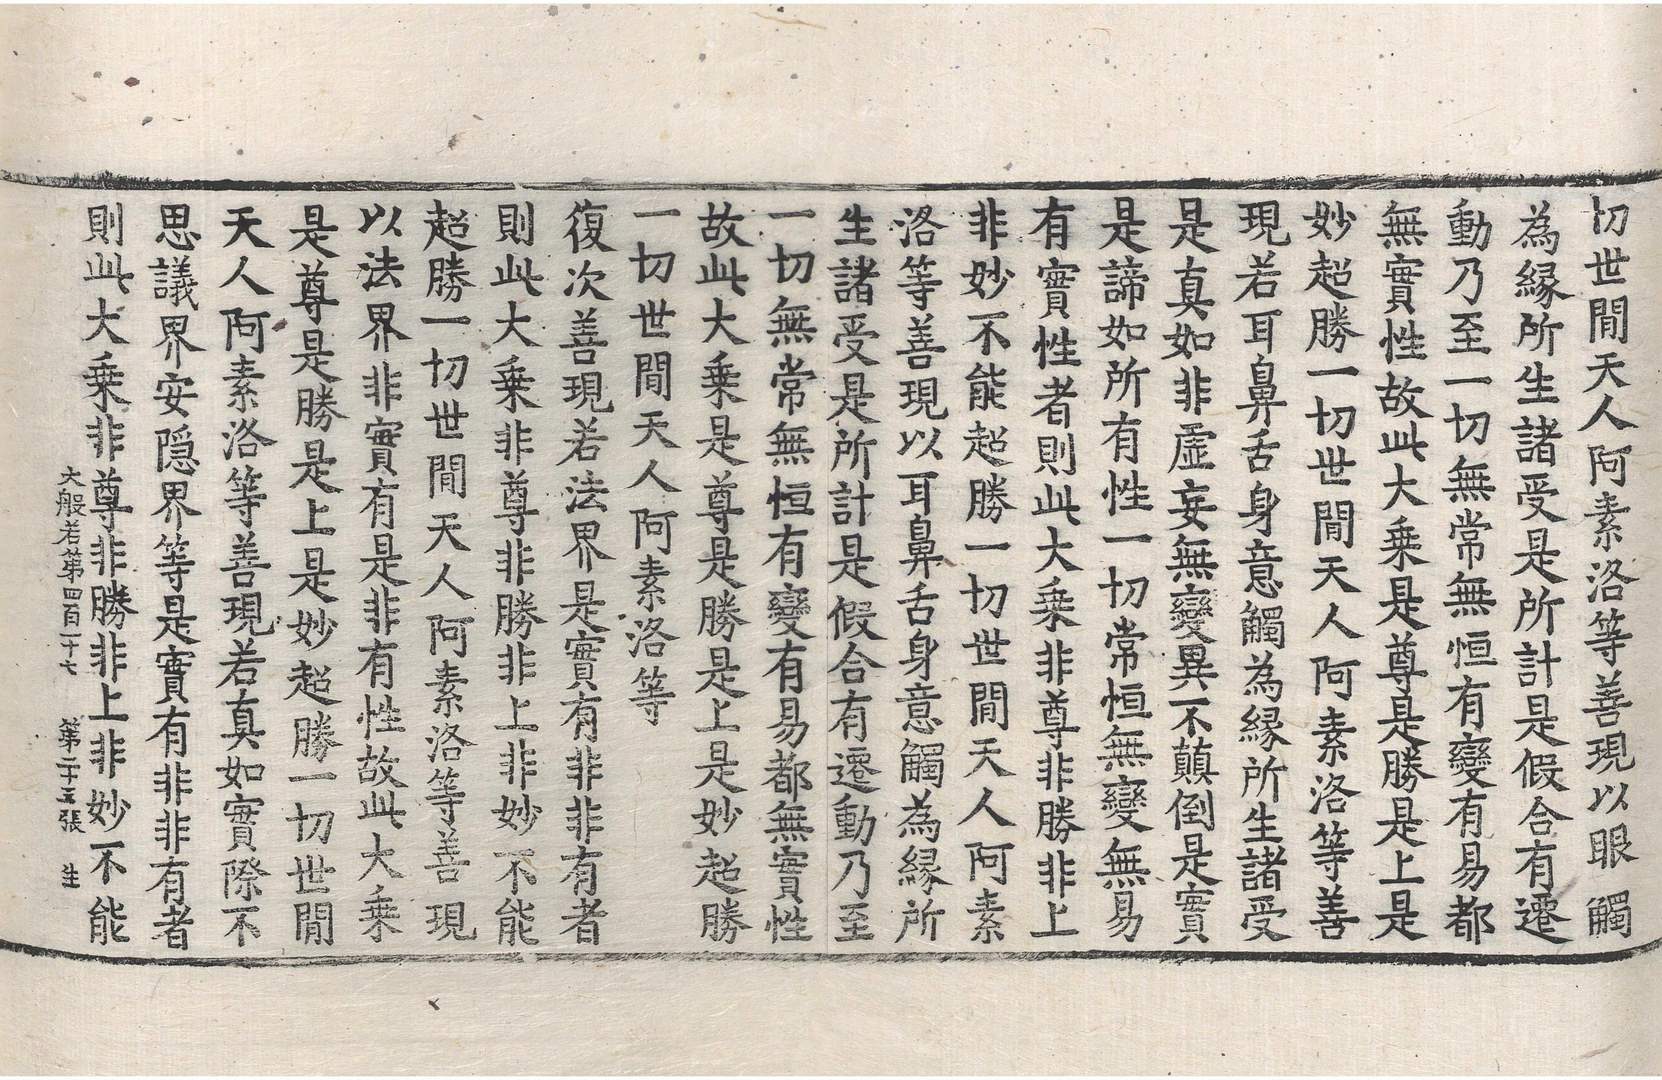 切世閒天人阿素洛等善現以眼觸
為緣所生諸受是所計是假合有遷
動乃至一切無常無恒有變有易都
無實性故此大乗是尊是勝是上是
妙超勝一切世閒天人阿素洛等善
現若耳鼻舌身意觸為緣所生諸受
是真如非虛妄無變異不顛倒是實
是諦如所有性一切常恒無變無易
有實性者則此大乗非尊非勝非上
非妙不能超勝一切世閒天人阿素
洛等善現以耳鼻舌身意觸為緣所
生諸受是所計是假合有遷動乃至
一切無常無恒有變有易都無實性
故此大乗是尊是勝是上是妙超勝
一切世閒天人阿素洛等
復次善現若法界是實有非非有者
則此大乗非尊非勝非上非妙不能
超勝一切世閒天人阿素洛等善現
以法界非實有是非有性故此大乗
是尊是勝是上是妙超勝一切世閒
天人阿素洛等善現若真如實際不
思議界安隠界等是實有非非有者
則此大乗非尊非勝非上非妙不能
大般若第四百一十七 第二十五張 生